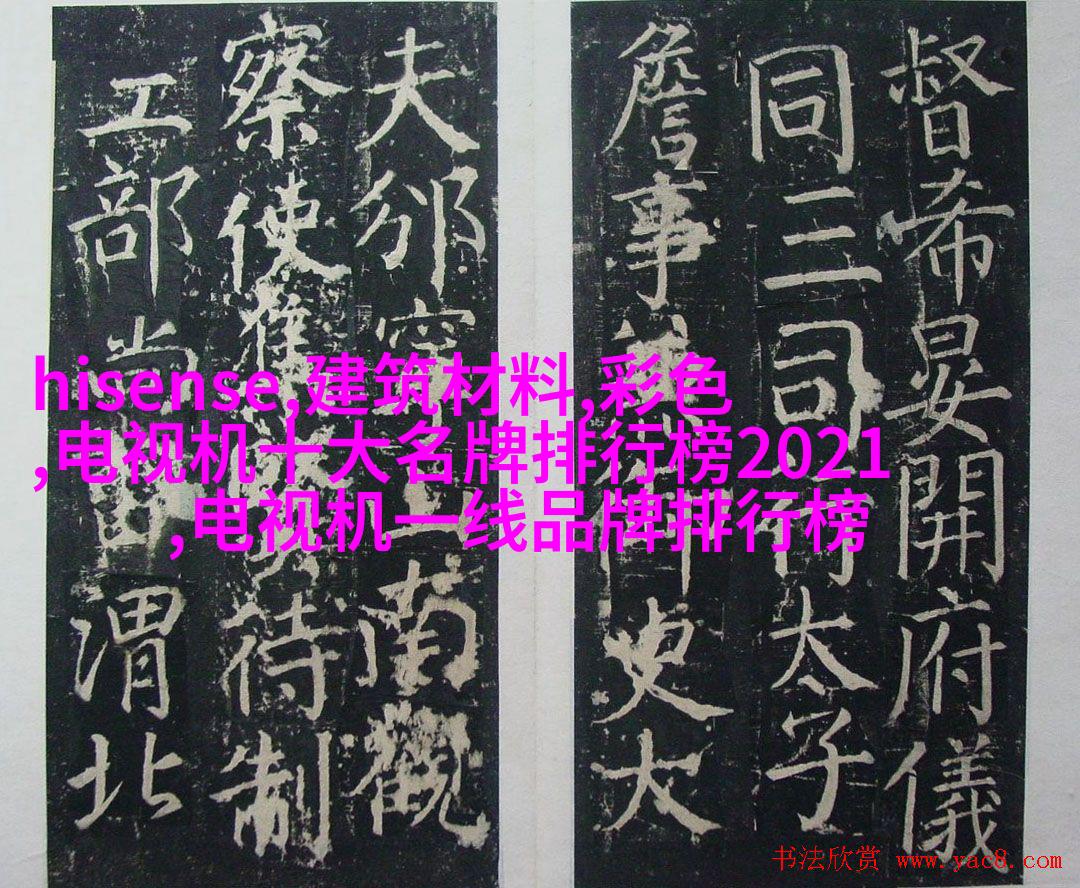 督希晏開府儀
同三司太子
詹事史大
夫邠南觀
察使待制
工部尚渭北
hisense,建筑材料,彩色
,电视机十大名牌排行榜2021
,电视机一线品牌排行榜
书法欣赏 www.yac8.com